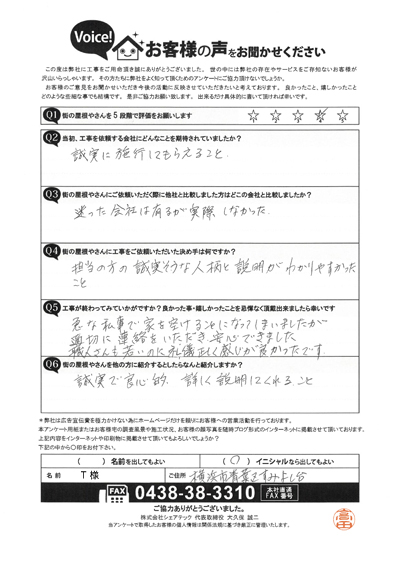 Voice!
お客様の声をお聞かせください
この度は弊社に工事をご用命頂き誠にありがとうございました。世の中には弊社の存在やサービスをご存知ないお客様が
沢山いらっしゃいます。その方たちに弊社をよく知って頂くためのアンケートにご協力頂けないでしょうか。
お客様のご意見をお聞かせいただき今後の活動に反映させていただきたいと考えております。良かったこと、嬉しかったこと
どのような些細な事でも結構です。是非ご協力お願い致します。出来るだけ具体的に書いて頂ければ幸いです。
Q1 街の屋根やさんを5段階で評価をお願いします ☆ ☆ ☆ ☆ ☆
Q2 当初、工事を依頼する会社にどんなことを期待されていましたか?
誠実に施行してもらえること。
Q3 街の屋根やさんにご依頼いただく際に他社と比較しました方はどこの会社と比較しましたか?
迷った会社は有るが実際しなかった
Q4 街の屋根やさんに工事をご依頼いただいた決め手は何ですか?
担当の方の誠実そうな人柄と説明がわかりやすかった
こと
Q5 工事が終わってみていかがですか?良かった事・嬉しかったことを忌憚なく頂戴出来ましたら幸いです
急な私事で家を空けることになってしまいましたが
適切に連絡をいただき安心できました
職人さんも若いのに礼儀正しく感じが良かったです。
Q6 街の屋根やさんを他の方に紹介するとしたらなんと紹介しますか?
誠実で良心的、詳しく説明してくれること
＊弊社は広告宣伝費を極力かけない為にホームページだけを頼りにお客様への営業活動を行っております。
本アンケート用紙またはお客様宅の調査風景や施工状況、お客様の顔写真を随時ブログ形式のインターネットに掲載させて頂いております。
上記内容をインターネットや印刷物に掲載させて頂いてもよろしいでしょうか?
下記の中から○印をお付下さい。
( ) 名前を出してもよい (○) イニシャルなら出してもよい
名前 T様 ご住所 横浜市青葉区すみよし台
FAX 0438-38-3310 本社直通 FAX番号
ご協力ありがとうございました。
株式会社シェアテック 代表取締役 大久保 誠二
当アンケートで取得したお客様の個人情報は関係法規に基づき厳正に管理いたします。
高田